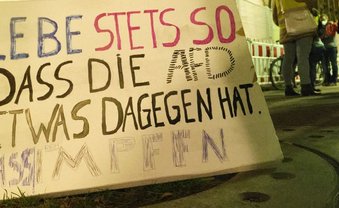 EBE STETS SO
DASS DIE AFD
ETWAS DAGEGEN HAT.
IMPFEN